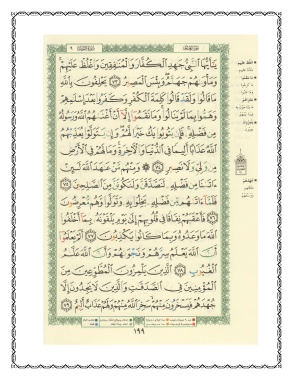 يَٰٓأَيُّهَا ٱلنَّبِىُّ جَٰهِدِ ٱلْكُفَّارَ وَٱلْمُنَٰفِقِينَ وَٱغْلُظْ عَلَيْهِمْ
وَمَأْوَىٰهُمْ جَهَنَّمُ وَبِئْسَ ٱلْمَصِيرُ ٧٣ يَحْلِفُونَ بِٱللَّهِ
مَا قَالُوا۟ وَلَقَدْ قَالُوا۟ كَلِمَةَ ٱلْكُفْرِ وَكَفَرُوا۟ بَعْدَ إِسْلَٰمِهِمْ
وَهَمُّوا۟ بِمَا لَمْ يَنَالُوا۟ وَمَا نَقَمُوٓا۟ إِلَّآ أَنْ أَغْنَىٰهُمُ ٱللَّهُ وَرَسُولُهُۥ
مِن فَضْلِهِۦ فَإِن يَتُوبُوا۟ يَكُ خَيْرًا لَّهُمْ وَإِن يَتَوَلَّوْا۟ يُعَذِّبْهُمُ
ٱللَّهُ عَذَابًا أَلِيمًا فِى ٱلدُّنْيَا وَٱلْءَاخِرَةِ وَمَا لَهُمْ فِى ٱلْأَرْضِ
مِن وَلِىٍّ وَلَا نَصِيرٍ ٧٤ وَمِنْهُم مَّنْ عَٰهَدَ ٱللَّهَ لَئِنْ
ءَاتَىٰنَا مِن فَضْلِهِۦ لَنَصَّدَّقَنَّ وَلَنَكُونَنَّ مِنَ ٱلصَّٰلِحِينَ ٧٥
فَلَمَّآ ءَاتَىٰهُم مِّن فَضْلِهِۦ بَخِلُوا۟ بِهِۦ وَتَوَلَّوا۟ وَّهُم مُّعْرِضُونَ
٧٦ فَأَعْقَبَهُمْ نِفَاقًا فِى قُلُوبِهِمْ إِلَىٰ يَوْمِ يَلْقَوْنَهُۥ بِمَآ أَخْلَفُوا۟
ٱللَّهَ مَا وَعَدُوهُ وَبِمَا كَانُوا۟ يَكْذِبُونَ ٧٧ أَلَمْ يَعْلَمُوٓا۟
أَنَّ ٱللَّهَ يَعْلَمُ سِرَّهُمْ وَنَجْوَىٰهُمْ وَأَنَّ ٱللَّهَ عَلَّٰمُ
ٱلْغُيُوبِ ٧٨ ٱلَّذِينَ يَلْمِزُونَ ٱلْمُطَّوِّعِينَ مِنَ
ٱلْمُؤْمِنِينَ فِى ٱلصَّدَقَٰتِ وَٱلَّذِينَ لَا يَجِدُونَ إِلَّا
جُهْدَهُمْ فَيَسْخَرُونَ مِنْهُمْ سَخِرَ ٱللَّهُ مِنْهُمْ وَلَهُمْ عَذَابٌ أَلِيمٌ ٧٩
١٩٩